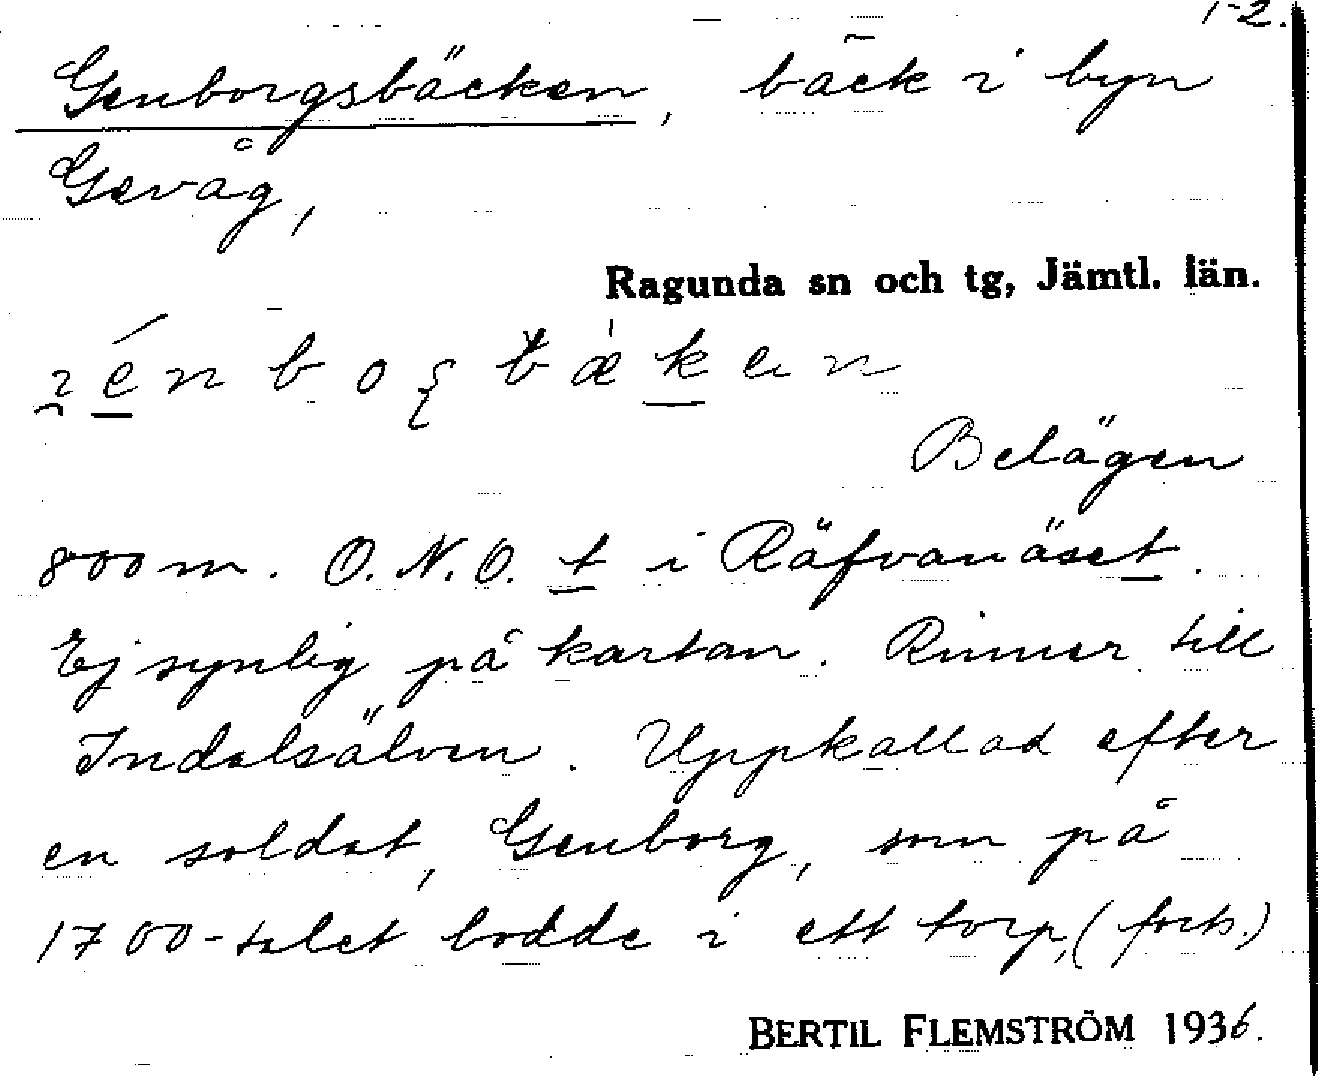 1-2.
Genborgsbäcken, bäck i byn
Gevåg,
Ragunda sn och tg, Jämtl. län.
Belägen
800 m. O.N.O. t i Räfvanäset.
Ej synlig på kartan. Rinner till
Indalsälven. Uppkallad efter
en soldat, Genborg, som på
1700-talet bodde i ett torp, (forts.)
BERTIL FLEMSTRÖM 1936.